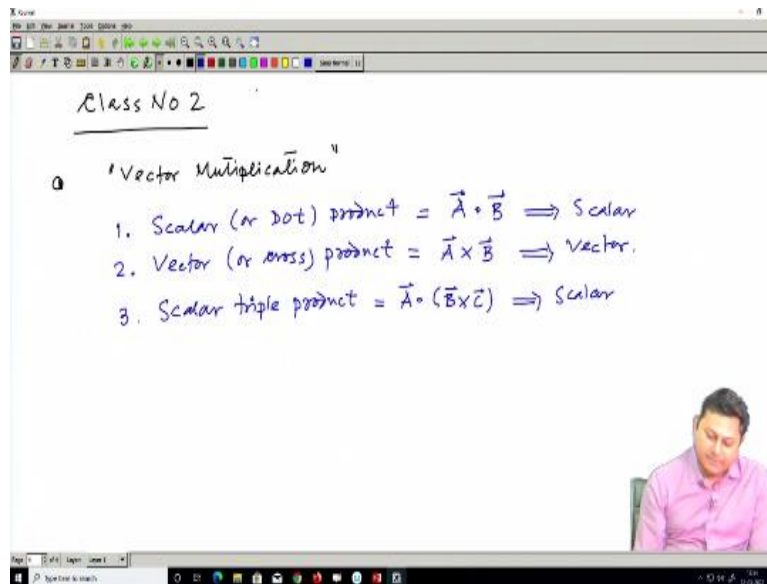 Class No 2
"Vector Mutiplication"
1. Scalar (or Dot) product = A⃗ • B⃗ ⟹ Scalar
2. Vector (or cross) product = A⃗ × B⃗ ⟹ Vector.
3. Scalar triple product = A⃗ • (B⃗ × C⃗) ⟹ Scalar
Type here to search